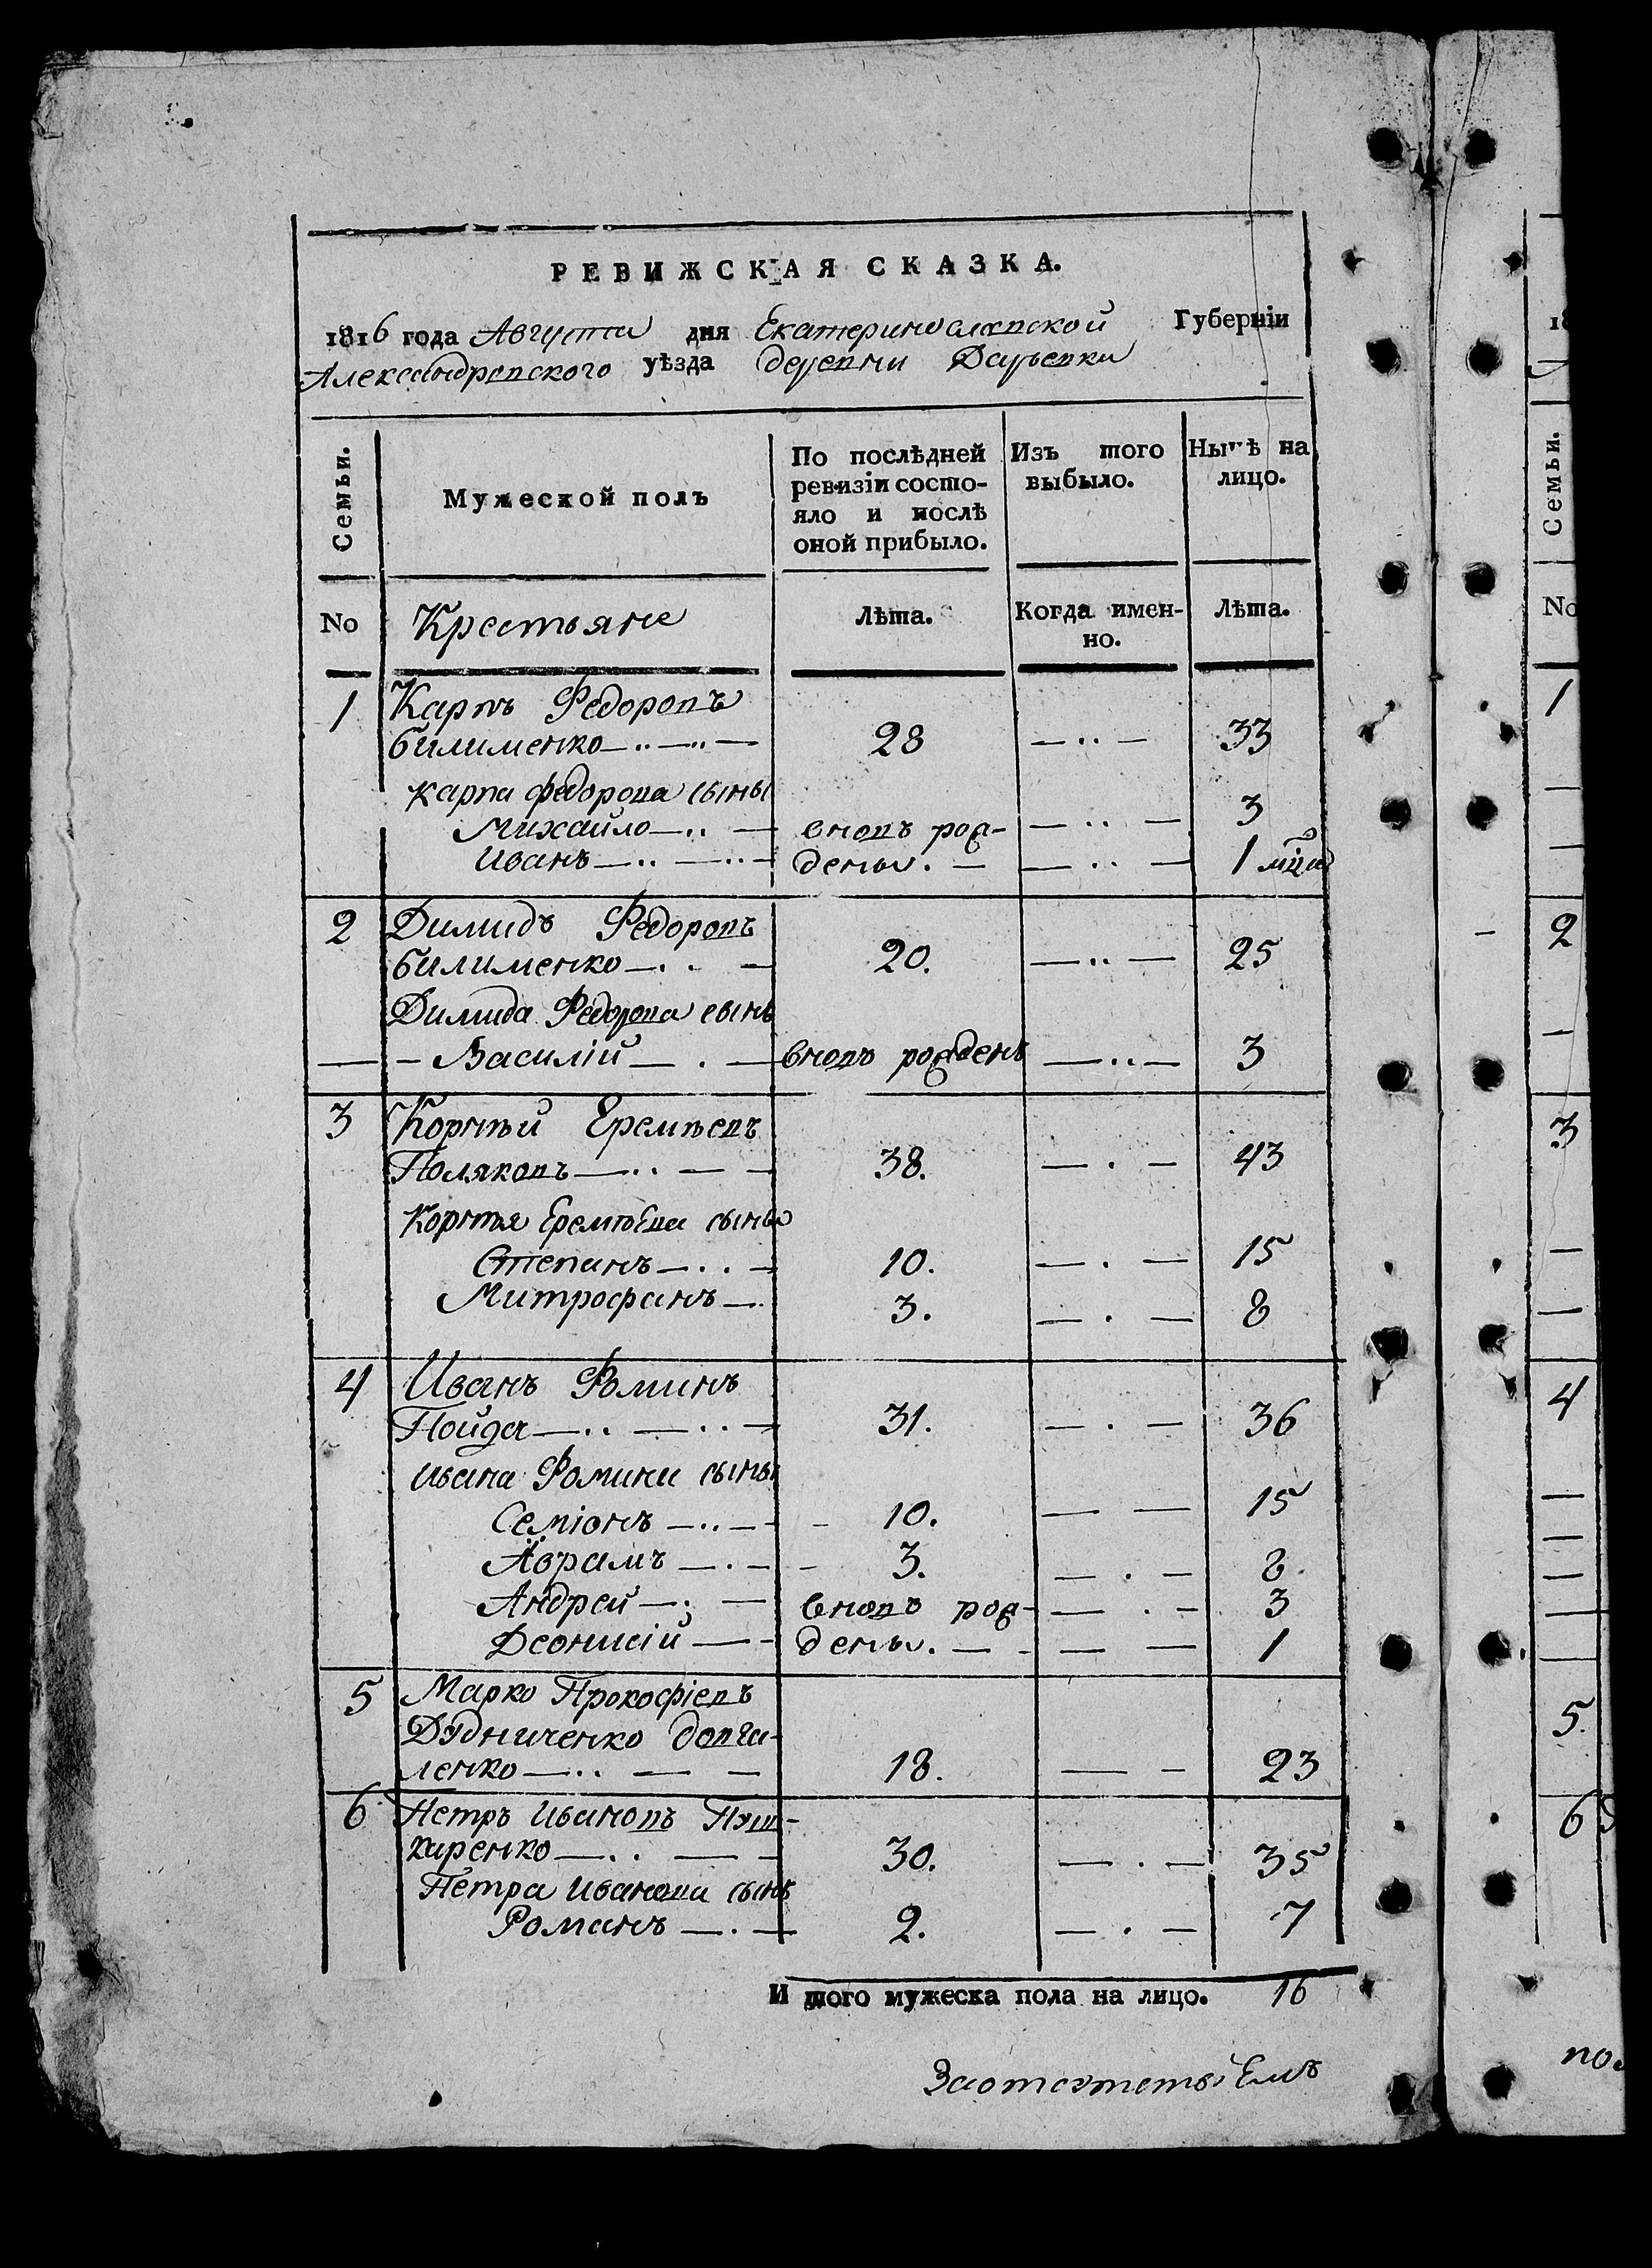 РЕВИЖСКАЯ СКАЗКА.
1816 года Августа дня Екатеринославской Губерніи
Александровского уѣзда деревни Дарьевки
Семьи.
Мужеской полъ
По послѣдней ревизіи состояло и послѣ оной прибыло.
Изъ того выбыло.
Нынѣ на лицо.
No Крестьяне Лѣта. Когда именно. Лѣта.
1 Карпъ Федоровъ
билименко 28 33
карпа федорова сыны
Михайло вновь рож- 3
Иванъ дены. 1 мца
2 Димидъ Федоровъ
билименко 20. 25
Димида Федорова сынъ
Василій вновь рожденъ 3
3 Корнѣй Еремѣевъ
Поляковъ 38. 43
Корнѣя Еремѣева сыны
Степанъ 10. 15
Митрофанъ 3. 8
4 Иванъ Фоминъ
Пойда 31. 36
ивана Фомина сыны
Семіонъ 10. 15
Аврамъ 3. 8
Андрей вновь рож- 3
Деонисій дены. 1
5 Марко Прокофіевъ
Дудниченко довга-
ленко 18. 23
6 Петръ Ивановъ Пуш-
каренко 30. 35
Петра Иванова сынъ
Романъ 2. 7
И того мужеска пола на лицо. 16
18
Семьи.
No
1
2
3
4
5.
6